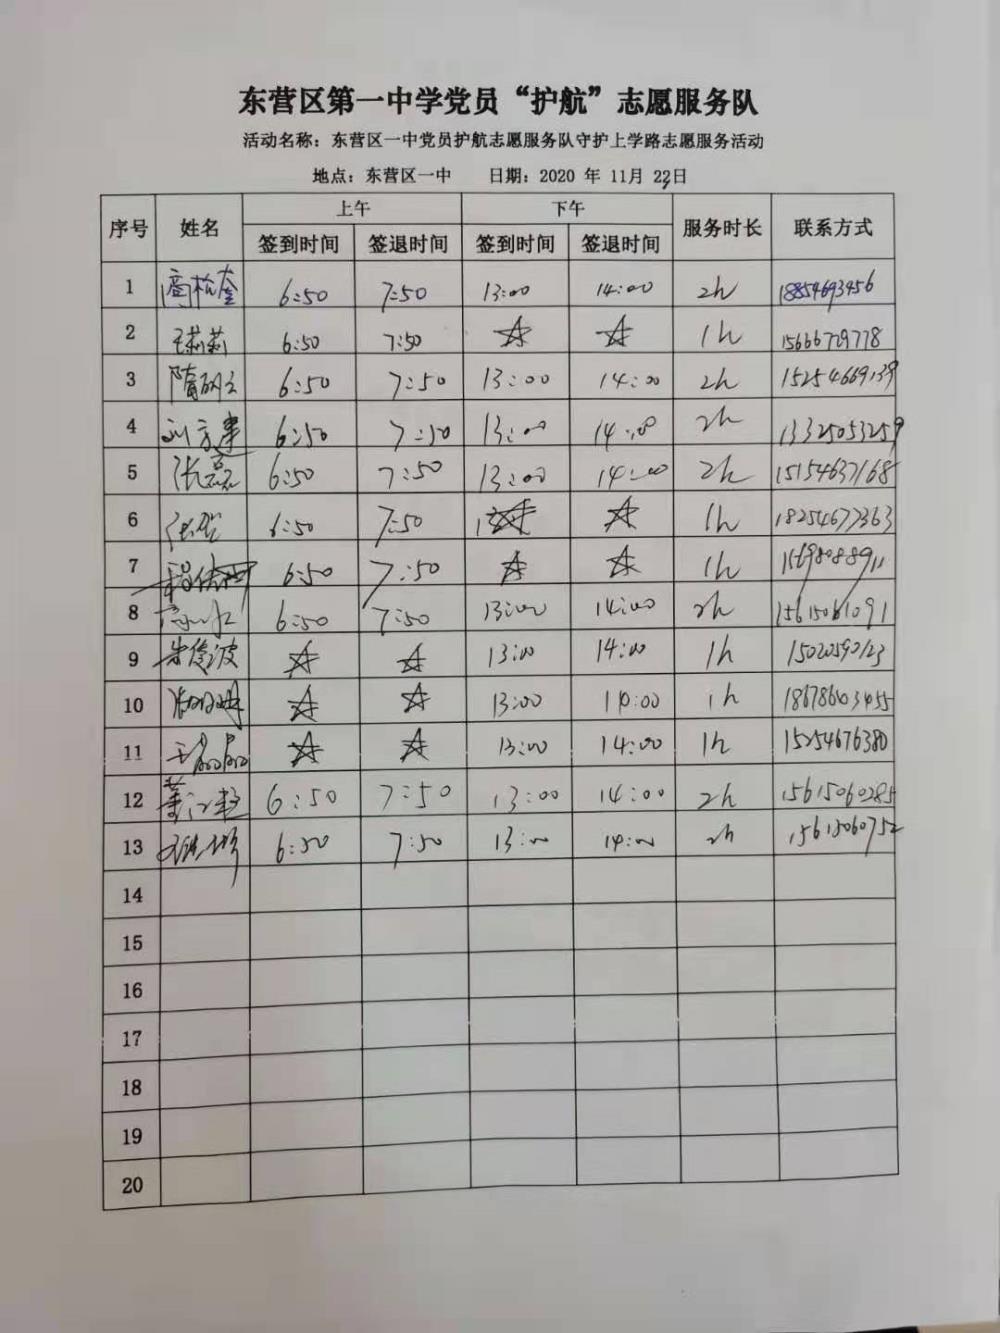 东营区第一中学党员“护航”志愿服务队
活动名称：东营区一中党员护航志愿服务队守护上学路志愿服务活动
地点：东营区一中 日期：2020 年 11月 22日
序号 姓名 上午 下午 服务时长 联系方式
签到时间 签退时间 签到时间 签退时间
1 6:50 7:50 13:00 14:00 2h 18854693456
2 王莉莉 6:50 7:50 ☆ ☆ 1h 15666729778
3 6:50 7:50 13:00 14:00 2h 15254669139
4 刘方建 6:50 7:50 13:00 14:00 2h 13325053259
5 张磊 6:50 7:50 13:00 14:00 2h 15154637168
6 6:50 7:50 ☆ ☆ 1h 18254677363
7 6:50 7:50 ☆ ☆ 1h
8 6:50 7:50 13:00 14:00 2h 15615061091
9 朱俊波 ☆ ☆ 13:00 14:00 1h 15020590123
10 ☆ ☆ 13:00 14:00 1h 18678603455
11 王晶晶 ☆ ☆ 13:00 14:00 1h 15254676380
12 6:50 7:50 13:00 14:00 2h 15615060285
13 6:50 7:50 13:00 14:00 2h 15615060752
14
15
16
17
18
19
20